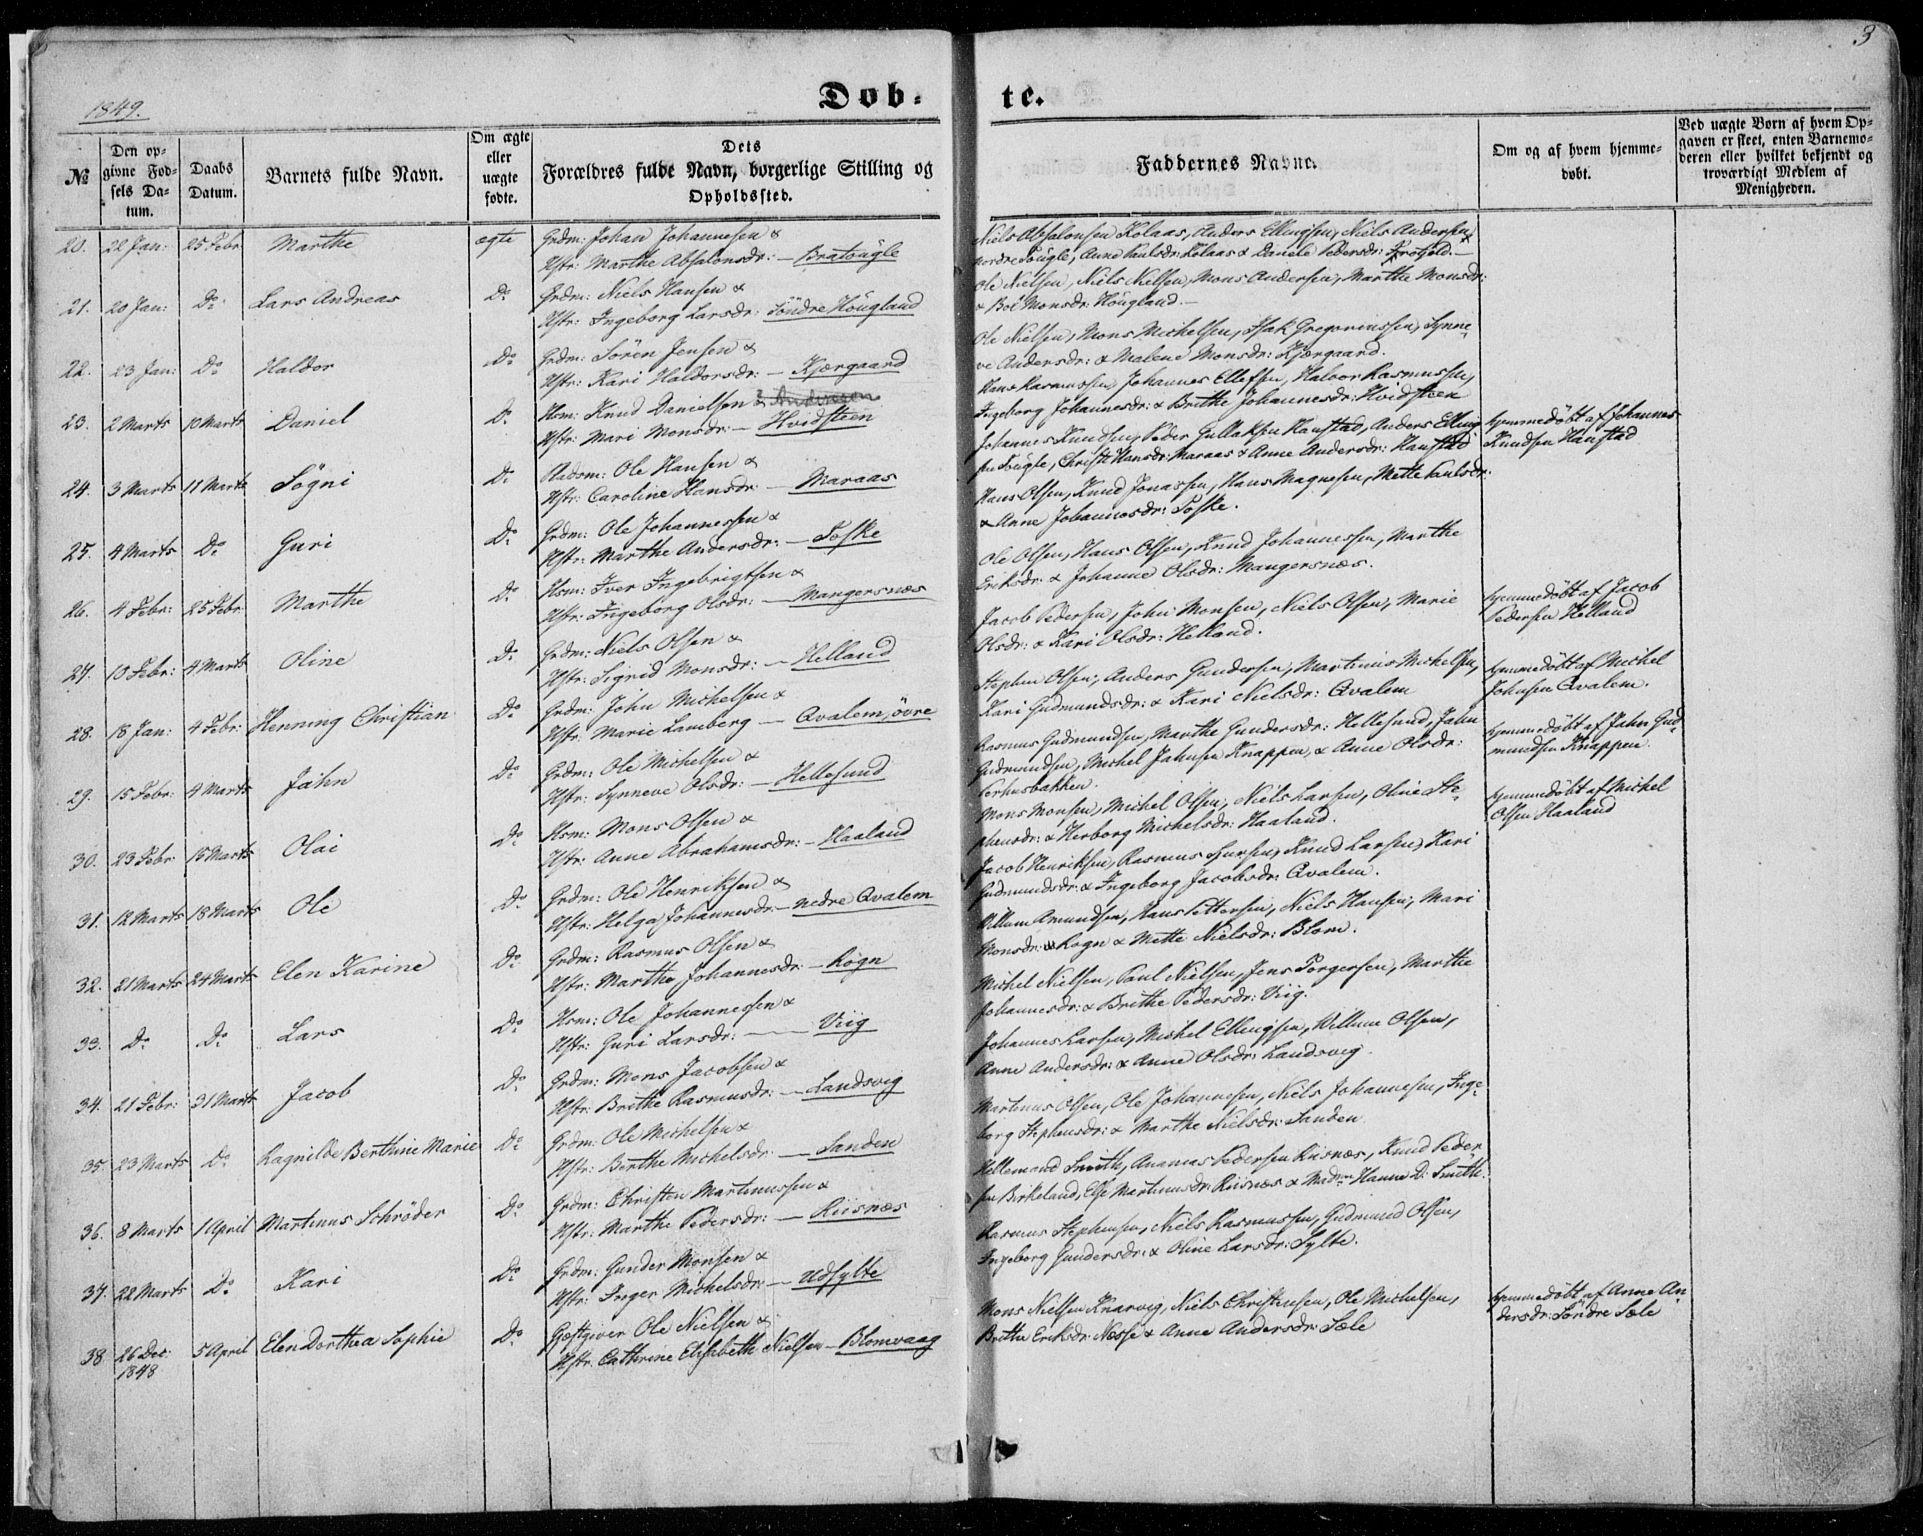 3
1849.
Døb-
te.
№
Den op-
givne Fød-
sels Da-
tum.
Daabs
Datum.
Barnets fulde Navn.
Om ægte
eller
uægte
fødte.
Dets
Forældres fulde Navn, borgerlige Stilling og
Opholdssted.
Faddernes Navne.
Om og af hvem hjemme-
døbt.
Ved uægte Børn af hvem Op-
gaven er skeet, enten Barnemo-
deren eller hvilket bekjendt og
troværdigt Medlem af
Menigheden.
20. 22 Jan: 25 Febr: Marthe ægte Grdm: Johan Johannesen &
Hstr: Marthe Absalonsdr: — Bratøugle
Niels Absalonsen Kolaas, Anders Ellingsen, Niels Andersen
nordre Søugle, Anne Paulsdr: Kolaas & Danele Pedersdr:
21. 20 Jan: Do Lars Andreas Do Grdm: Niels Hansen &
Hstr: Ingeborg Larsdr: Söndre Höugland
Ole Nielsen, Niels Nielsen, Mons Andersen, Marthe Monsdr:
& Boe Monsdr: Höugland.—
22. 23 Jan: Do Haldor Do Grdm: Sören Jensen &
Hstr: Kari Haldorsdr: — Kjærgaard
Ole Nielsen, Mons Michelsen, Isak Gregoriussen, Synne-
ve Andersdr: & Malene Monsdr: Kjærgaard.
23. 2 Marts 10 Marts Daniel Do Hsm: Knud Danielsen &
Hstr: Mari Monsdr: — Hvidsteen
Hans Rasmussen, Johannes Ellefsen, Halvor Rasmussen,
Ingeborg Johannesdr: & Brithe Johannesdr: Hvidsteen
24. 3 Marts 11 Marts Sögni Do Aadsm: Ole Hansen &
Hstr: Caroline Hansdr: — Maraas
Johannes Knudsen, Peder Gullaksen Hanstad, Anders Elling-
sen Søugle, Christi Hansdr: Maraas & Anne Andersdr: Hanstad
hjemmedöbt af Johannes
Knudsen Hanstad
25. 4 Marts Do Guri Do Grdm: Ole Johannessen &
Hstr: Marthe Andersdr: — Toske
Hans Olsen, Knud Jonassen, Hans Magnesen, Mette Paulsdr:
& Anne Johannesdr: Toske.
26. 4 Febr: 25 Febr Marthe Do Hsm: Iver Ingebrigtsen &
Hstr: Ingeborg Olsdr: — Mangersnæs
Ole Olsen, Hans Olsen, Knud Johannessen, Marthe
Eriksdr: & Johanne Olsdr: Mangersnæs.
27. 10 Febr: 4 Marts Oline Do Grdm: Niels Olsen &
Hstr: Sigrid Monsdr: — Helland
Jacob Pedersen, John Monsen, Niels Olsen, Marie
Olsdr: & Kari Olsdr: Helland.
hjemmedöbt af Jacob
Pedersen Helland
28. 18 Jan: 4 Febr: Henning Christian Do Grdm: John Michelsen &
Hstr: Marie Lamberg — Qvalem, övre
Stephen Olsen, Anders Gundersen, Martinus Michelsen,
Kari Gudmundsdr: & Kari Nielsdr: Qvalem
hjemmedöbt af Michel
Johnsen Qvalem.
29. 15 Febr: 4 Marts Jahn Do Grdm: Ole Michelsen &
Hstr: Synneve Olsdr: — Hellesund
Rasmus Gudmundsen, Marthe Gundersdr: Hellesund, Jahn
Gudmundsen, Michel Jahnsen Knappen, & Anne Olsdr:
hjemmedöbt af Jahn Gud-
mundsen Knappen.
30. 23 Febr 15 Marts Olai Do Hsm: Mons Olsen &
Hstr: Anne Abrahamsdr: — Haaland
Mons Monsen, Michel Olsen, Niels Larsen, Oline Ste-
phensdr: & Herborg Michelsdr: Haaland.
hjemmedöbt af Michel
Olsen Haaland
31. 12 Marts 18 Marts Ole Do Grdm: Ole Henriksen &
Hstr: Helga Johannesdr: — nedre Qvalem
Jacob Henriksen, Rasmus Sjursen, Knud Larsen, Kari
Gudmundsdr: & Ingeborg Jacobsdr: Qvalem.
32. 21 Marts 24 Marts Elen Karine Do Grdm: Rasmus Olsen &
Hstr: Marthe Johannesdr: — Rogn
Villum Amundsen, Hans Pettersen, Niels Hansen, Mari
Monsdr: Rogn & Mette Nielsdr: Blom.
33. Do Do Lars Do Hsm: Ole Johannessen &
Hstr: Guri Larsdr: — Viig
Michel Nielsen, Paul Nielsen, Jens Torgersen, Marthe
Johannesdr: & Brithe Pedersdr: Viig.
34. 21 Febr: 31 Marts Jacob Do Grdm: Mons Jacobsen &
Hstr: Brithe Rasmusdr: — Landsvig
Johannes Larsen, Michel Ellingsen, Willum Olsen,
Anne Andersdr: & Anne Olsdr: Landsvig.
35. 23 Marts Do Ragnilde Berthine Marie Do Grdm: Ole Michelsen &
Hstr: Berthe Michelsdr: — Sanden
Martinus Olsen, Ole Johannesen, Niels Johannesen, Inge-
borg Stephensdr: & Marthe Nielsdr: Sanden
36. 8 Marts 1 April Martinus Schröder Do Grdm: Christen Martinussen &
Hstr: Marthe Pedersdr: — Riisnæs
Hellemand Smith, Ananias Pedersen Riisnæs, Knud Peder-
sen Birkeland, Else Martinusdr: Riisnæs & Madm: Hanne D: Smith.
37. 22 Marts Do Kari Do Grdm: Gunder Monsen &
Hstr: Inger Michelsdr: — Udsylte
Rasmus Stephensen, Niels Rasmussen, Gudmund Olsen,
Ingeborg Gundersdr: & Oline Larsdr: Sylte.
38 26 Dec: 5 April Elen Dorthea Sophie Do Gjestgiver Ole Nielsen &
1848 Hstr: Cathrine Elisabeth Nielsen — Blomvaag
Mons Nielsen Knarvig, Niels Christensen, Ole Michelsen,
Brithe Eriksdr: Næsse & Anne Andersdr: Sæle
hjemmedöbt af Anne An-
dersdr: Söndre Sæle